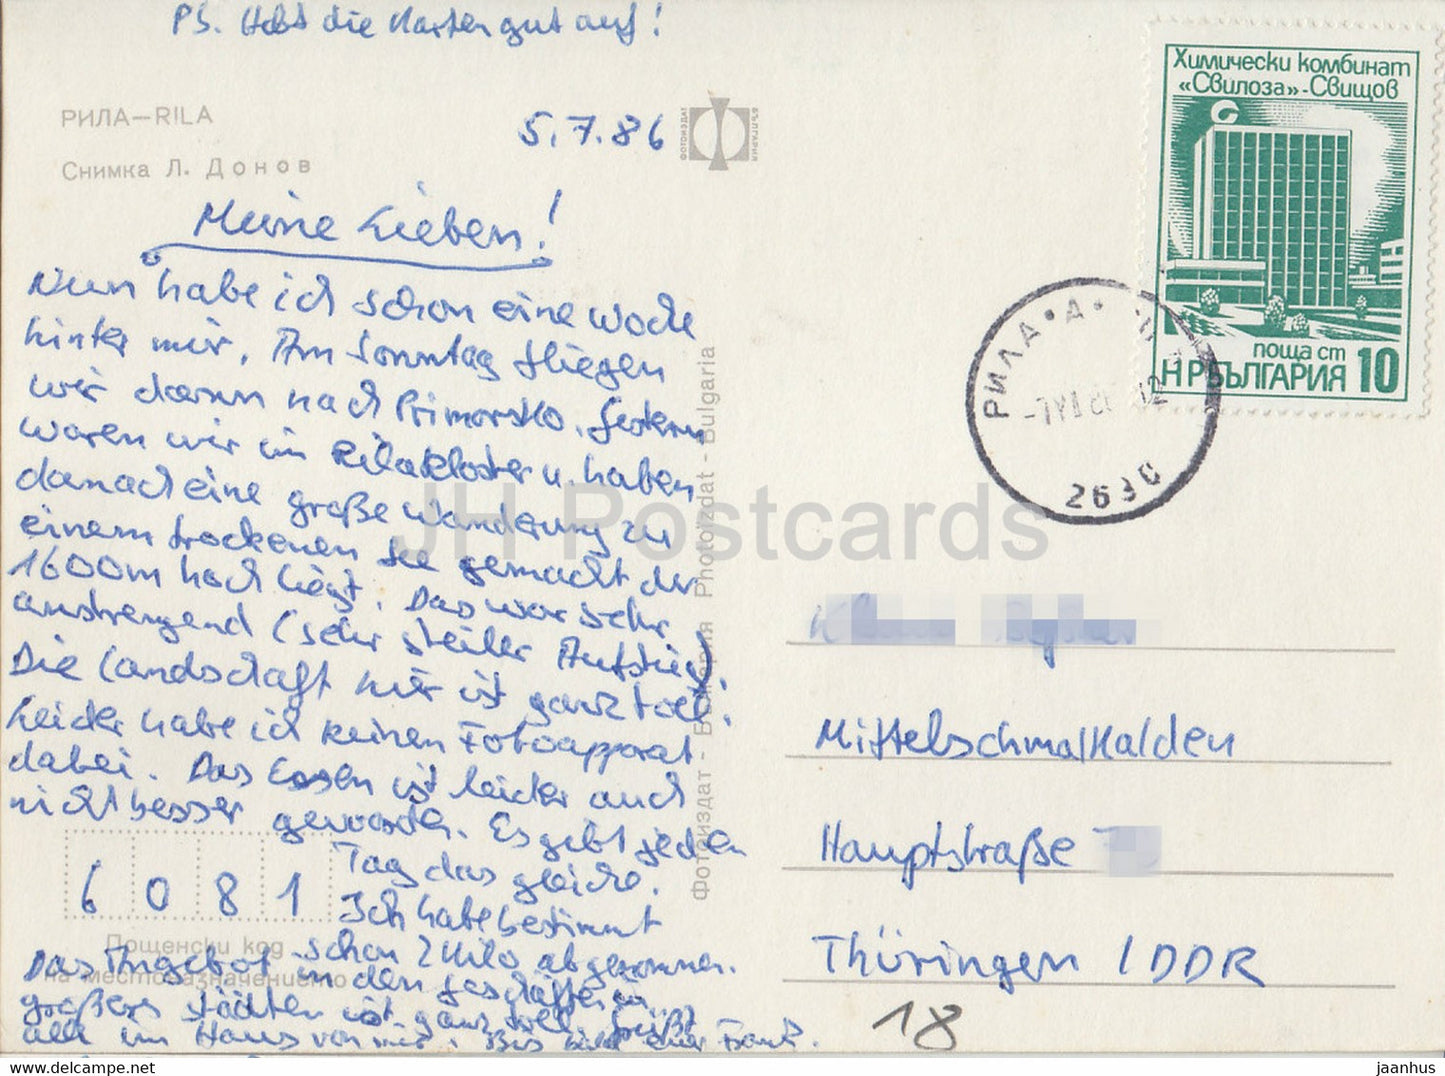 PS. Hebt die Karten gut auf!
РИЛА—RILA
Снимка Л. Донов
5.7.86
ФОТОИЗДАТ
БЪЛГАРИЯ
Meine Lieben!
Nun habe ich schon eine Woche
hinter mir. Am Sonntag fliegen
wir dann nach Primorsko. Gestern
waren wir im Rilakloster u. haben
danach eine große Wanderung zu
einem trockenen See gemacht der
1600m hoch liegt. Das war sehr
anstrengend (sehr steiler Aufstieg).
Die Landschaft hier ist ganz toll.
Leider habe ich keinen Fotoapparat
dabei. Das Essen ist leider auch
nicht besser geworden. Es gibt jeden
Tag das gleiche.
Ich habe bestimmt
schon 2 Kilo abgenommen.
Das Angebot in den Geschäften in
größeren Städten ist ganz toll. Grüßt
alle im Haus von mir. Bis bald eur Frank.
6 0 8 1
Пощенски код
на местоназначението
Фотоиздат - България Photoizdat - Bulgaria
Химически комбинат
«Свилоза»-Свищов
поща ст
НР БЪЛГАРИЯ 10
РИЛА • А •
2630
Mittelschmalkalden
Hauptstraße
Thüringen / DDR
18
JH Postcards
hip.kiwi.com
jaanhus